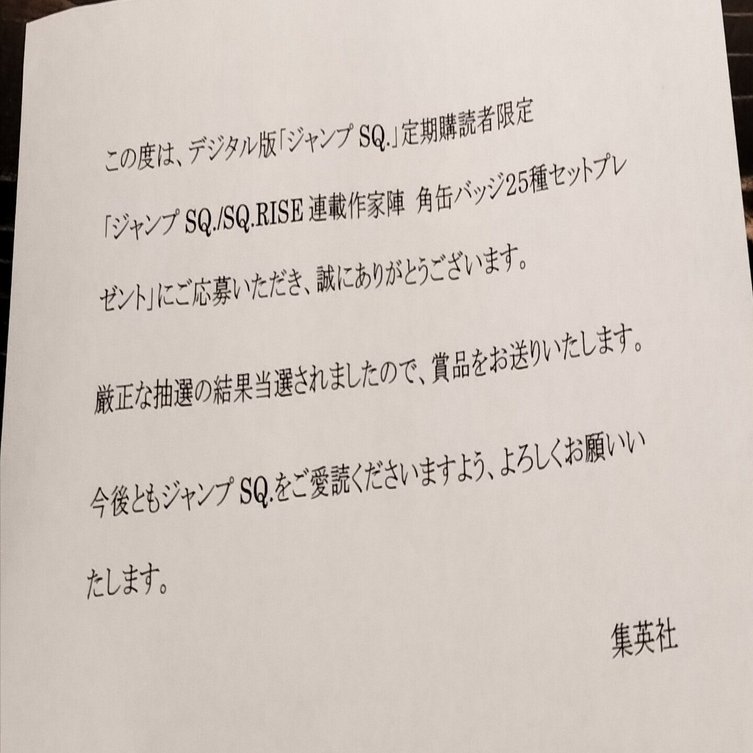 この度は、デジタル版「ジャンプ SQ.」定期購読者限定
「ジャンプ SQ./SQ.RISE 連載作家陣 角缶バッジ25種セットプレ
ゼント」にご応募いただき、誠にありがとうございます。
厳正な抽選の結果当選されましたので、賞品をお送りいたします。
今後ともジャンプ SQ.をご愛読くださいますよう、よろしくお願いい
たします。
集英社